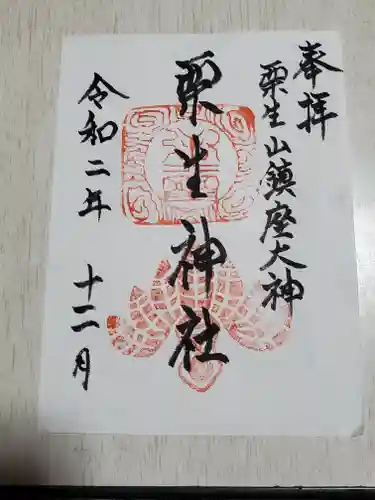 奉拝
栗生山鎮座大神
栗生神社
令和二年
十二月